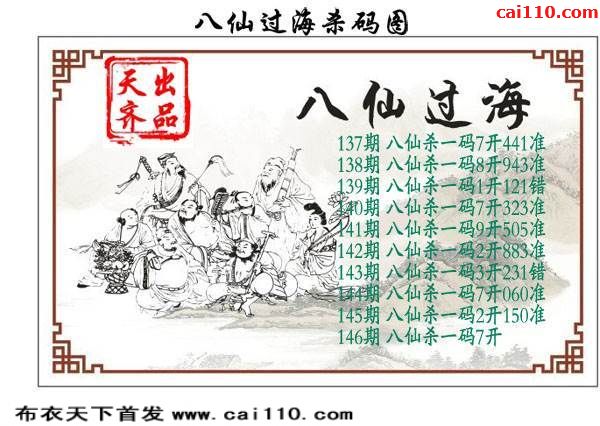 八仙过海杀码图
cai110.com
天出
齐品
八仙过海
137期 八仙杀一码7开441准
138期 八仙杀一码8开943准
139期 八仙杀一码1开121错
140期 八仙杀一码7开323准
141期 八仙杀一码9开505准
142期 八仙杀一码2开883准
143期 八仙杀一码3开231错
144期 八仙杀一码7开060准
145期 八仙杀一码2开150准
146期 八仙杀一码7开
布衣天下首发 www.cai110.com